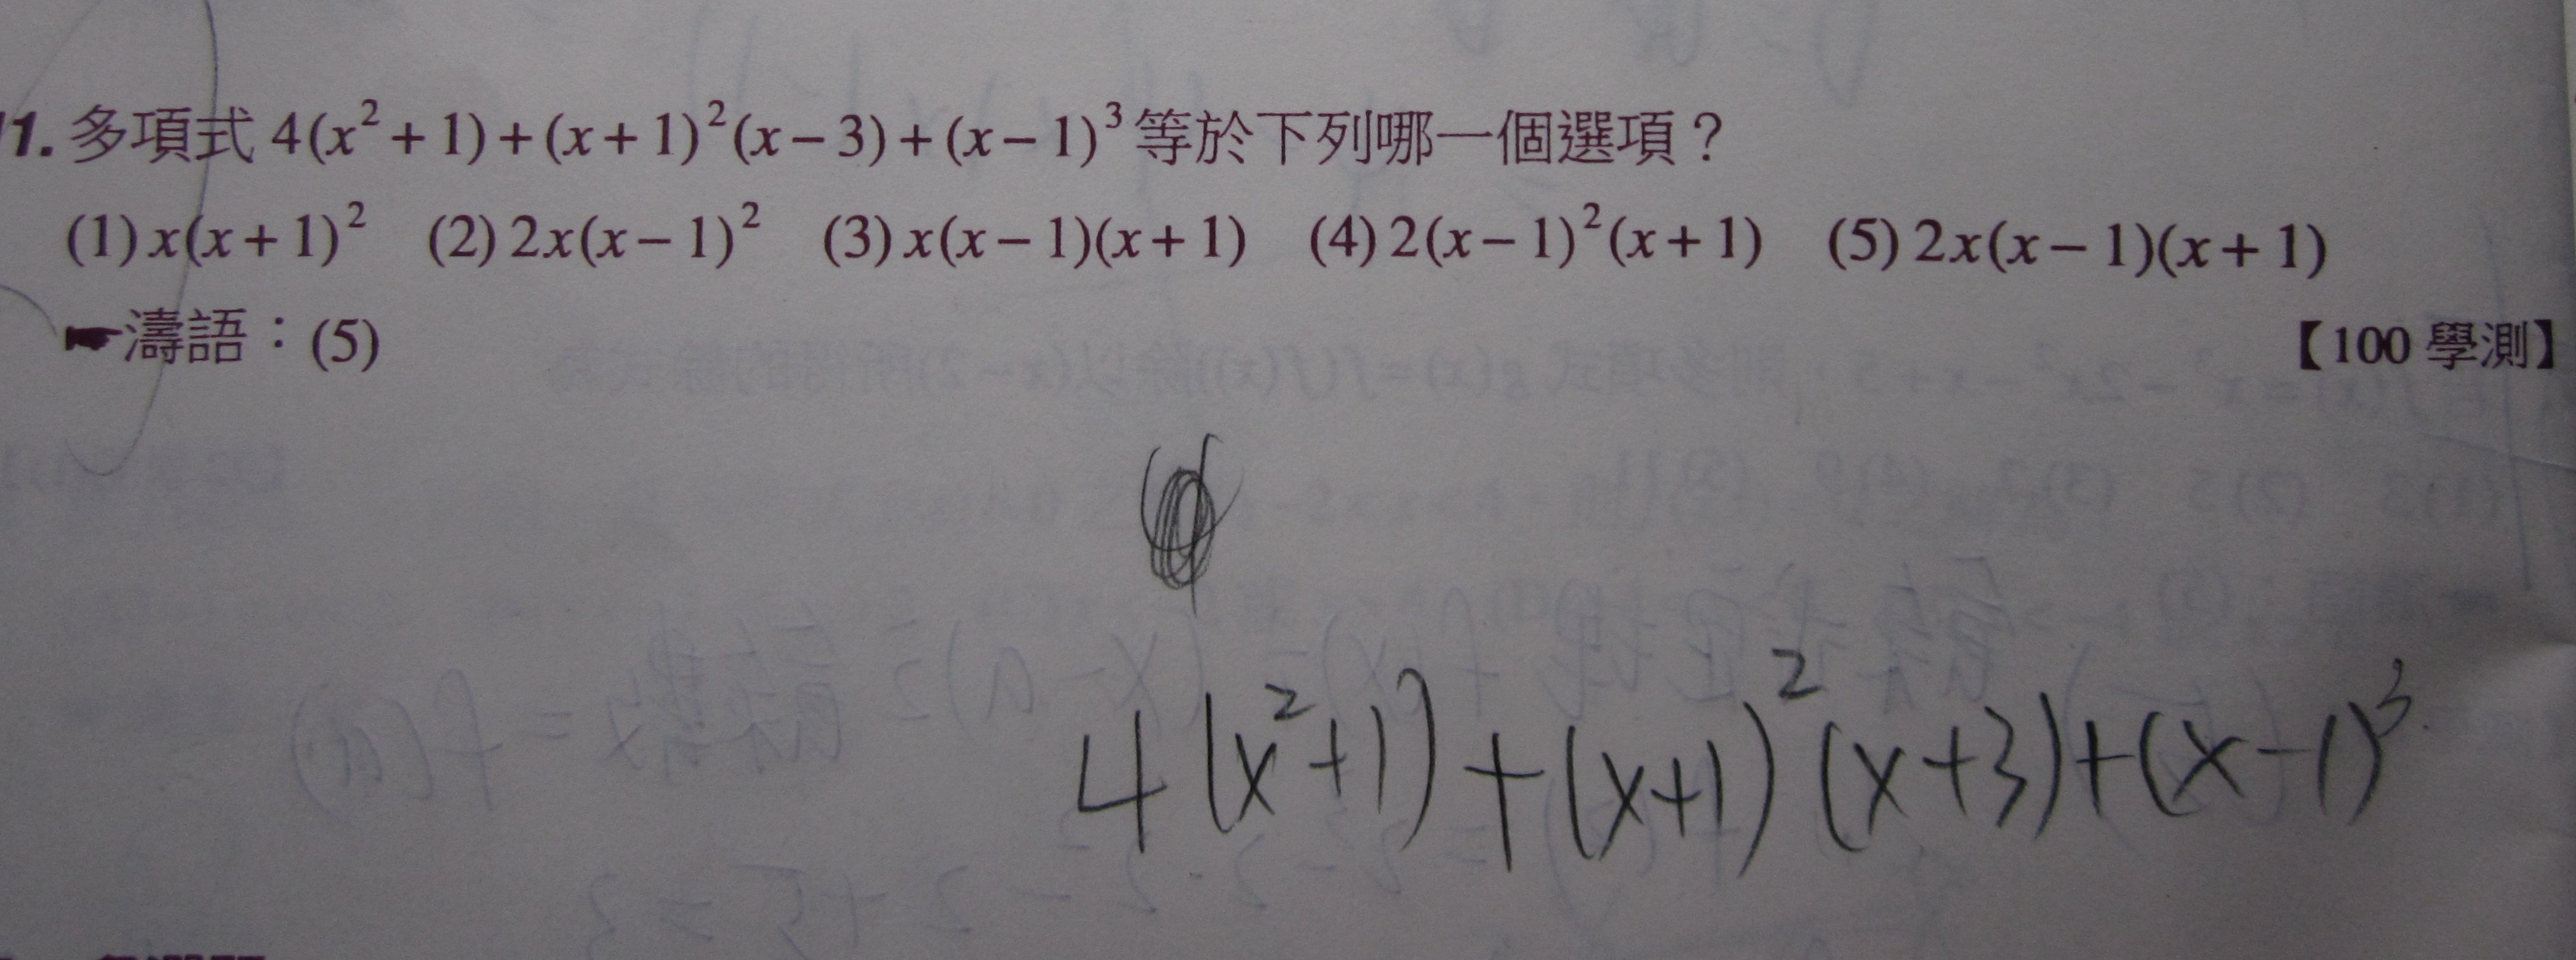 1. 多項式 4(x²+1)+(x+1)²(x−3)+(x−1)³ 等於下列哪一個選項？
(1) x(x+1)² (2) 2x(x−1)² (3) x(x−1)(x+1) (4) 2(x−1)²(x+1) (5) 2x(x−1)(x+1)
☛濤語：(5) 【100 學測】
4(x²+1)+(x+1)²(x+3)+(x−1)³